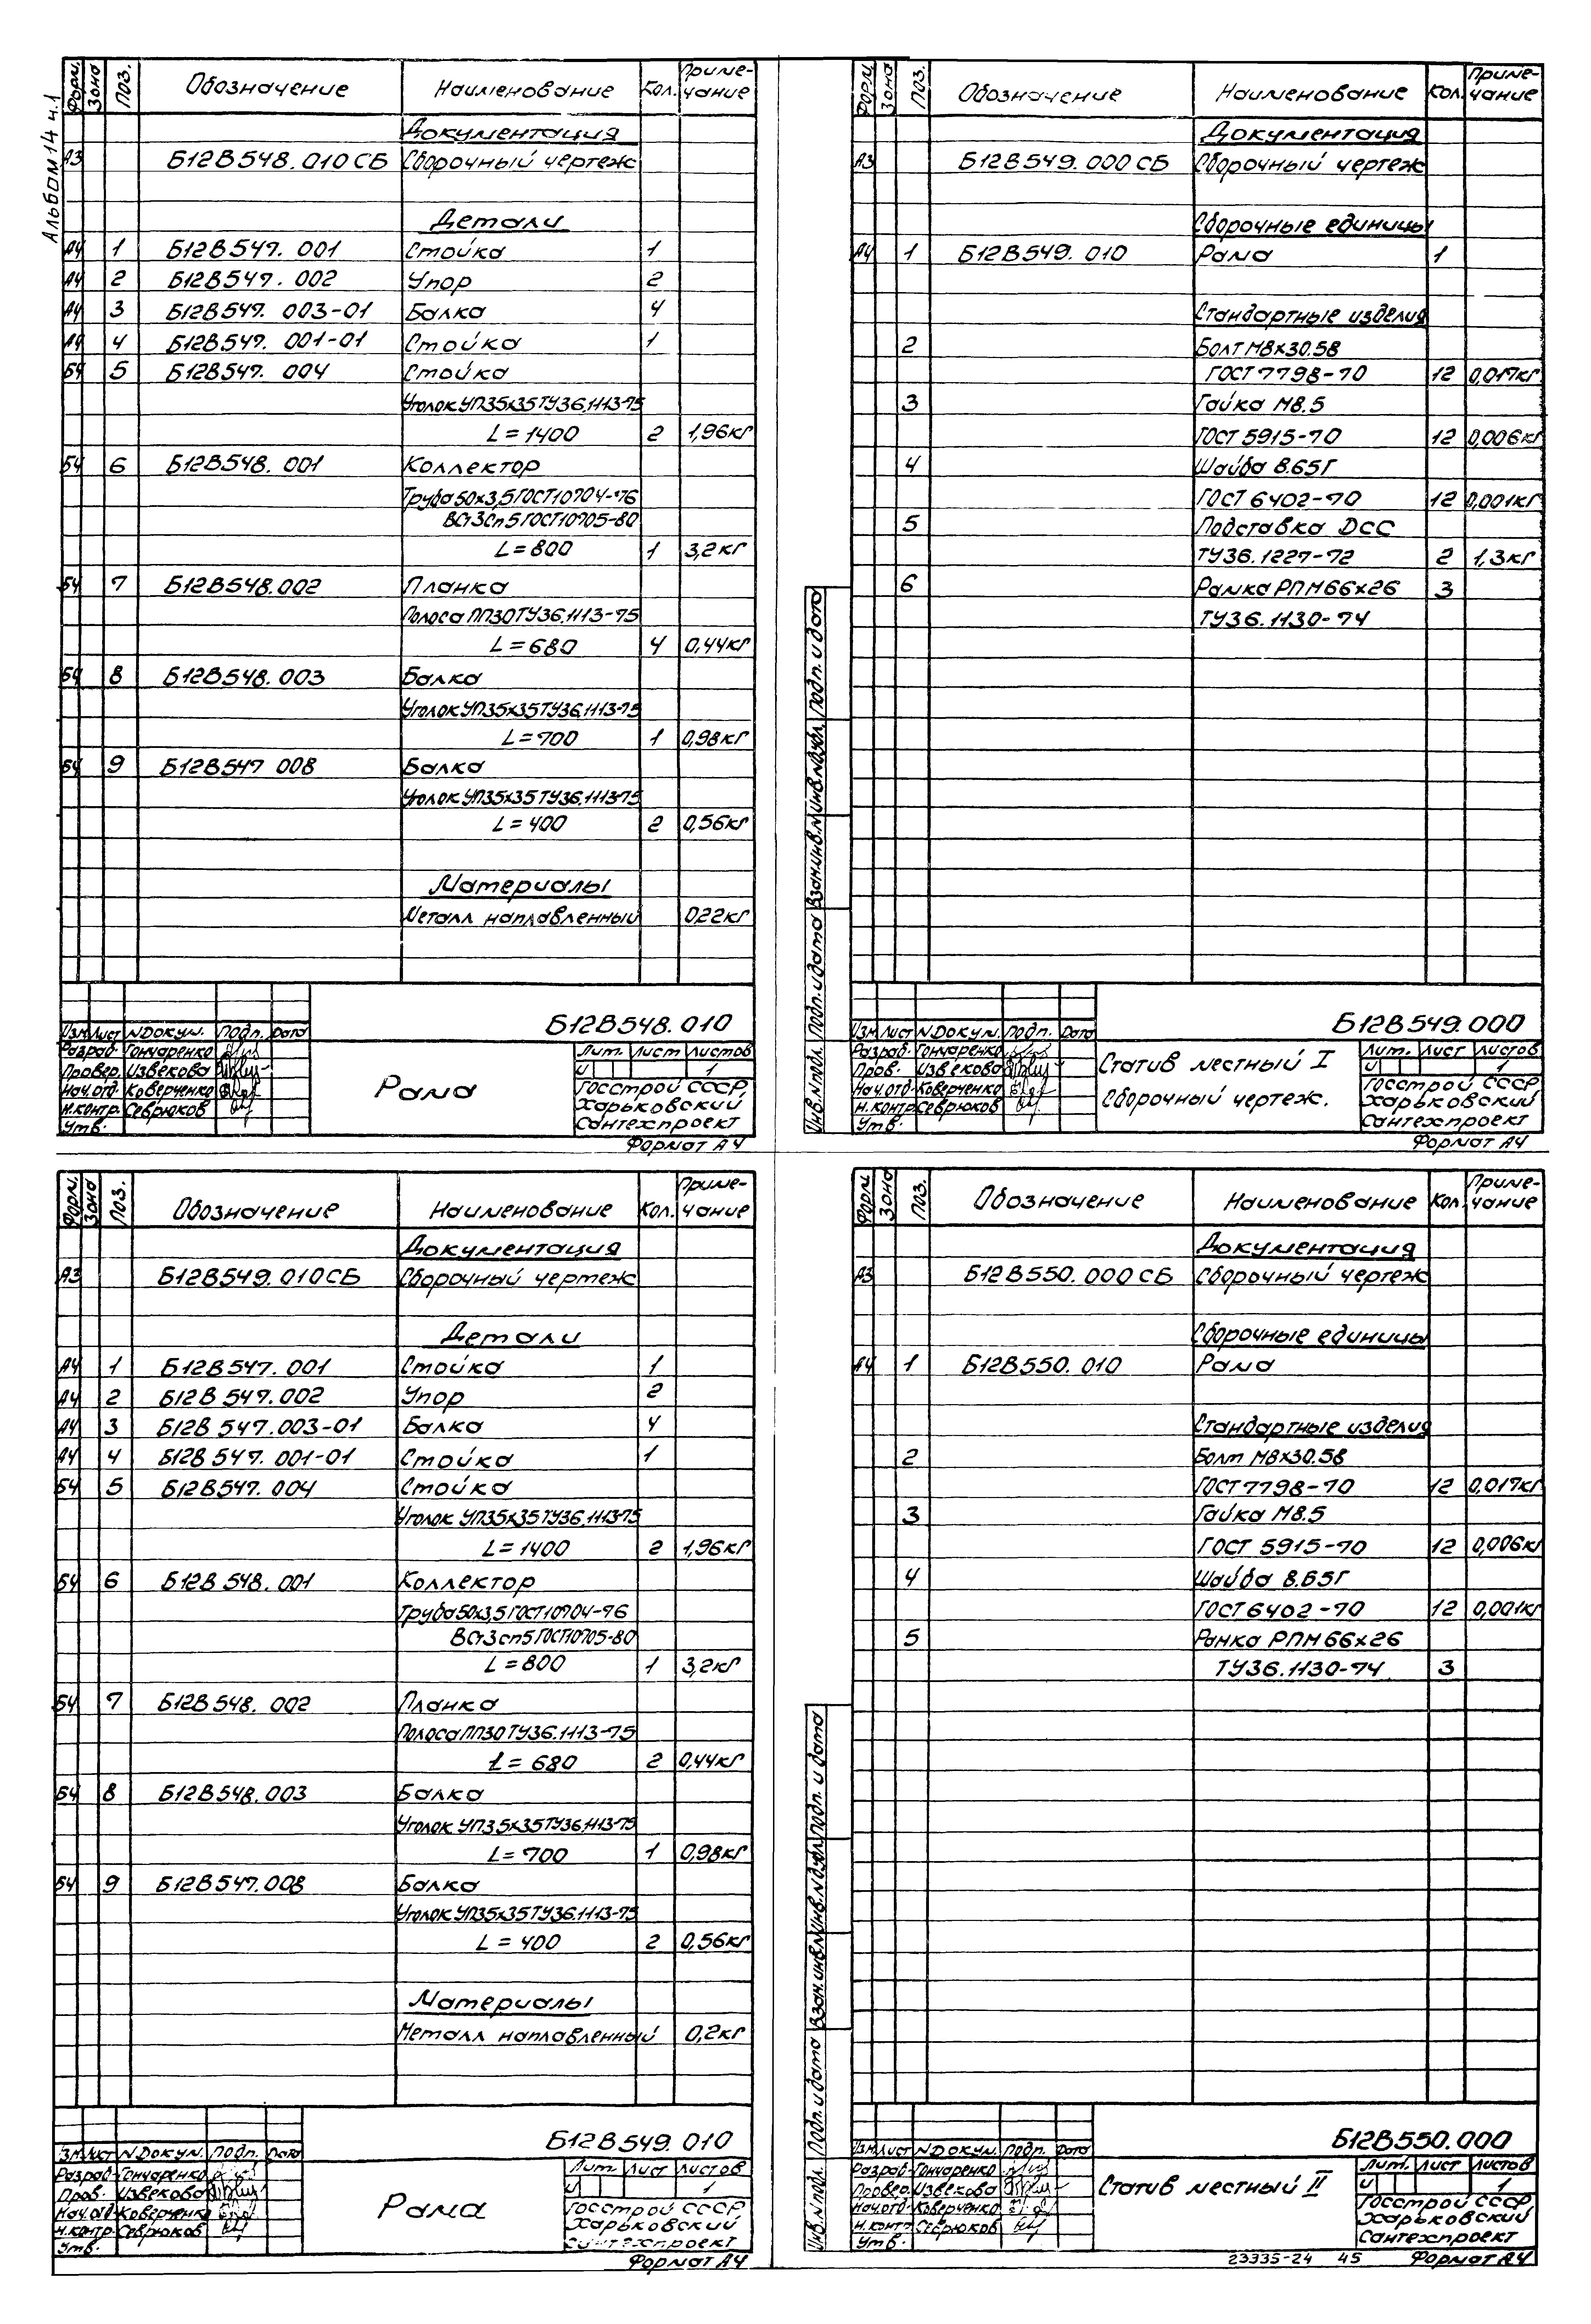 Альбом 14 ч.1
Форм. Зона Поз. Обозначение Наименование Кол. Приме-чание
Документация
А3 Б12В548.010 СБ Сборочный чертеж
Детали
А4 1 Б12В547.001 Стойка 1
А4 2 Б12В547.002 Упор 2
А4 3 Б12В547.003-01 Балка 4
А4 4 Б12В547.001-01 Стойка 1
Б4 5 Б12В547.004 Стойка
Уголок УП35х35ТУ36.1113-75
L=1400 2 1,96кг
Б4 6 Б12В548.001 Коллектор
Труба 50х3,5 ГОСТ10704-76
ВСт3Сп5 ГОСТ10705-80
L=800 1 3,2кг
Б4 7 Б12В548.002 Планка
Полоса ПП30ТУ36.1113-75
L=680 4 0,44кг
Б4 8 Б12В548.003 Балка
Уголок УП35х35ТУ36.1113-75
L=700 1 0,98кг
Б4 9 Б12В547 008 Балка
Уголок УП35х35ТУ36.1113-75
L=400 2 0,56кг
Материалы
Металл наплавленный 022кг
Б12В548.010
Изм. Лист N Докум. Подп. Дата
Разраб. Гончаренко
Провер. Извекова
Нач.отд. Коверченко
Н.контр. Севрюков
Утв.
Рама
Лит. Лист Листов
И 1
Госстрой СССР,
Харьковский
Сантехпроект
Формат А4
Форм Зона Поз. Обозначение Наименование Кол. Приме-чание
Документация
А3 Б12В549.000 СБ Сборочный чертеж
Сборочные единицы
А4 1 Б12В549.010 Рама 1
Стандартные изделия
2 Болт М8х30.58
ГОСТ 7798-70 12 0,017кг
3 Гайка М8.5
ГОСТ 5915-70 12 0,006кг
4 Шайба 8.65Г
ГОСТ 6402-70 12 0,001кг
5 Подставка ДСС
ТУ36.1227-72 2 1,3кг
6 Рамка РПМ 66х26 3
ТУ36.1130-74
Инв.N подл. Подп. и дата Взам.инв.N Инв.N дубл. Подп. и дата
Б12В549.000
Изм Лист N Докум. Подп. Дата
Разраб. Гончаренко
Пров. Извекова
Нач.отд. Коверченко
Н.контр. Севрюков
Утв.
Статив местный I
Сборочный чертеж.
Лит. Лист Листов
И 1
Госстрой СССР
Харьковский
Сантехпроект
Формат А4
Форм. Зона Поз. Обозначение Наименование Кол. Приме-чание
Документация
А3 Б12В549.010СБ Сборочный чертеж
Детали
А4 1 Б12В547.001 Стойка 1
А4 2 Б12В 547.002 Упор 2
А4 3 Б12В 547.003-01 Балка 4
А4 4 Б12В 547.001-01 Стойка 1
Б4 5 Б12В547.004 Стойка
Уголок УП35х35ТУ36.1113-75
L=1400 2 1,96кг
Б4 6 Б12В 548.001 Коллектор
Труба 50х3,5 ГОСТ10704-76
ВСт3сп5 ГОСТ10705-80
L=800 1 3,2кг
Б4 7 Б12В548.002 Планка
Полоса ПП30 ТУ36.1113-75
L=680 2 0,44кг
Б4 8 Б12В548.003 Балка
Уголок УП35х35ТУ36.1113-75
L=700 1 0,98кг
Б4 9 Б12В547.008 Балка
Уголок УП35х35ТУ36.1113-75
L=400 2 0,56кг
Материалы
Металл наплавленный 0,2кг
Б12В549.010
Изм. Лист N Докум. Подп. Дата
Разраб. Гончаренко
Пров. Извекова
Нач.отд Коверченко
Н.контр. Севрюков
Утв.
Рама
Лит. Лист Листов
И 1
Госстрой СССР,
Харьковский
Сантехпроект
Формат А4
Форм Зона Поз. Обозначение Наименование Кол. Приме-чание
Документация
А3 Б12В550.000 СБ Сборочный чертеж
Сборочные единицы
А4 1 Б12В550.010 Рама
Стандартные изделия
2 Болт М8х30.58
ГОСТ 7798-70 12 0,017кг
3 Гайка М8.5
ГОСТ 5915-70 12 0,006кг
4 Шайба 8.65Г
ГОСТ 6402-70 12 0,001кг
5 Рамка РПМ 66х26
ТУ36.1130-74 3
Инв.N подл. Подп. и дата Взам.инв.N Инв.N дубл. Подп. и дата
Б12В550.000
Изм. Лист N Докум. Подп. Дата
Разраб. Гончаренко
Провер. Извекова
Нач.отд. Коверченко
Н.контр Севрюков
Утв.
Статив местный II
Лит. Лист Листов
И 1
Госстрой СССР,
Харьковский
Сантехпроект
23335-24 45 Формат А4